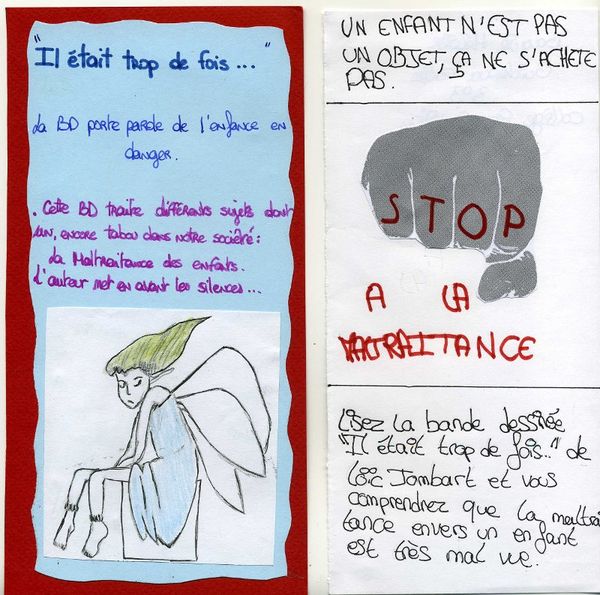 "Il était trop de fois..."
La BD porte parole de l'enfance en
danger.
. Cette BD traite différents sujets dont
un, encore tabou dans notre société:
La Maltraitance des enfants.
L'auteur met en avant les silences...
UN ENFANT N'EST PAS
UN OBJET, ÇA NE S'ACHETE
PAS.
STOP
A LA
MALTRAITANCE
Lisez la bande dessinée
"Il était trop de fois..." de
Loïc Jombart et vous
comprendrez que la maltrai
tance envers un enfant
est très mal vue.